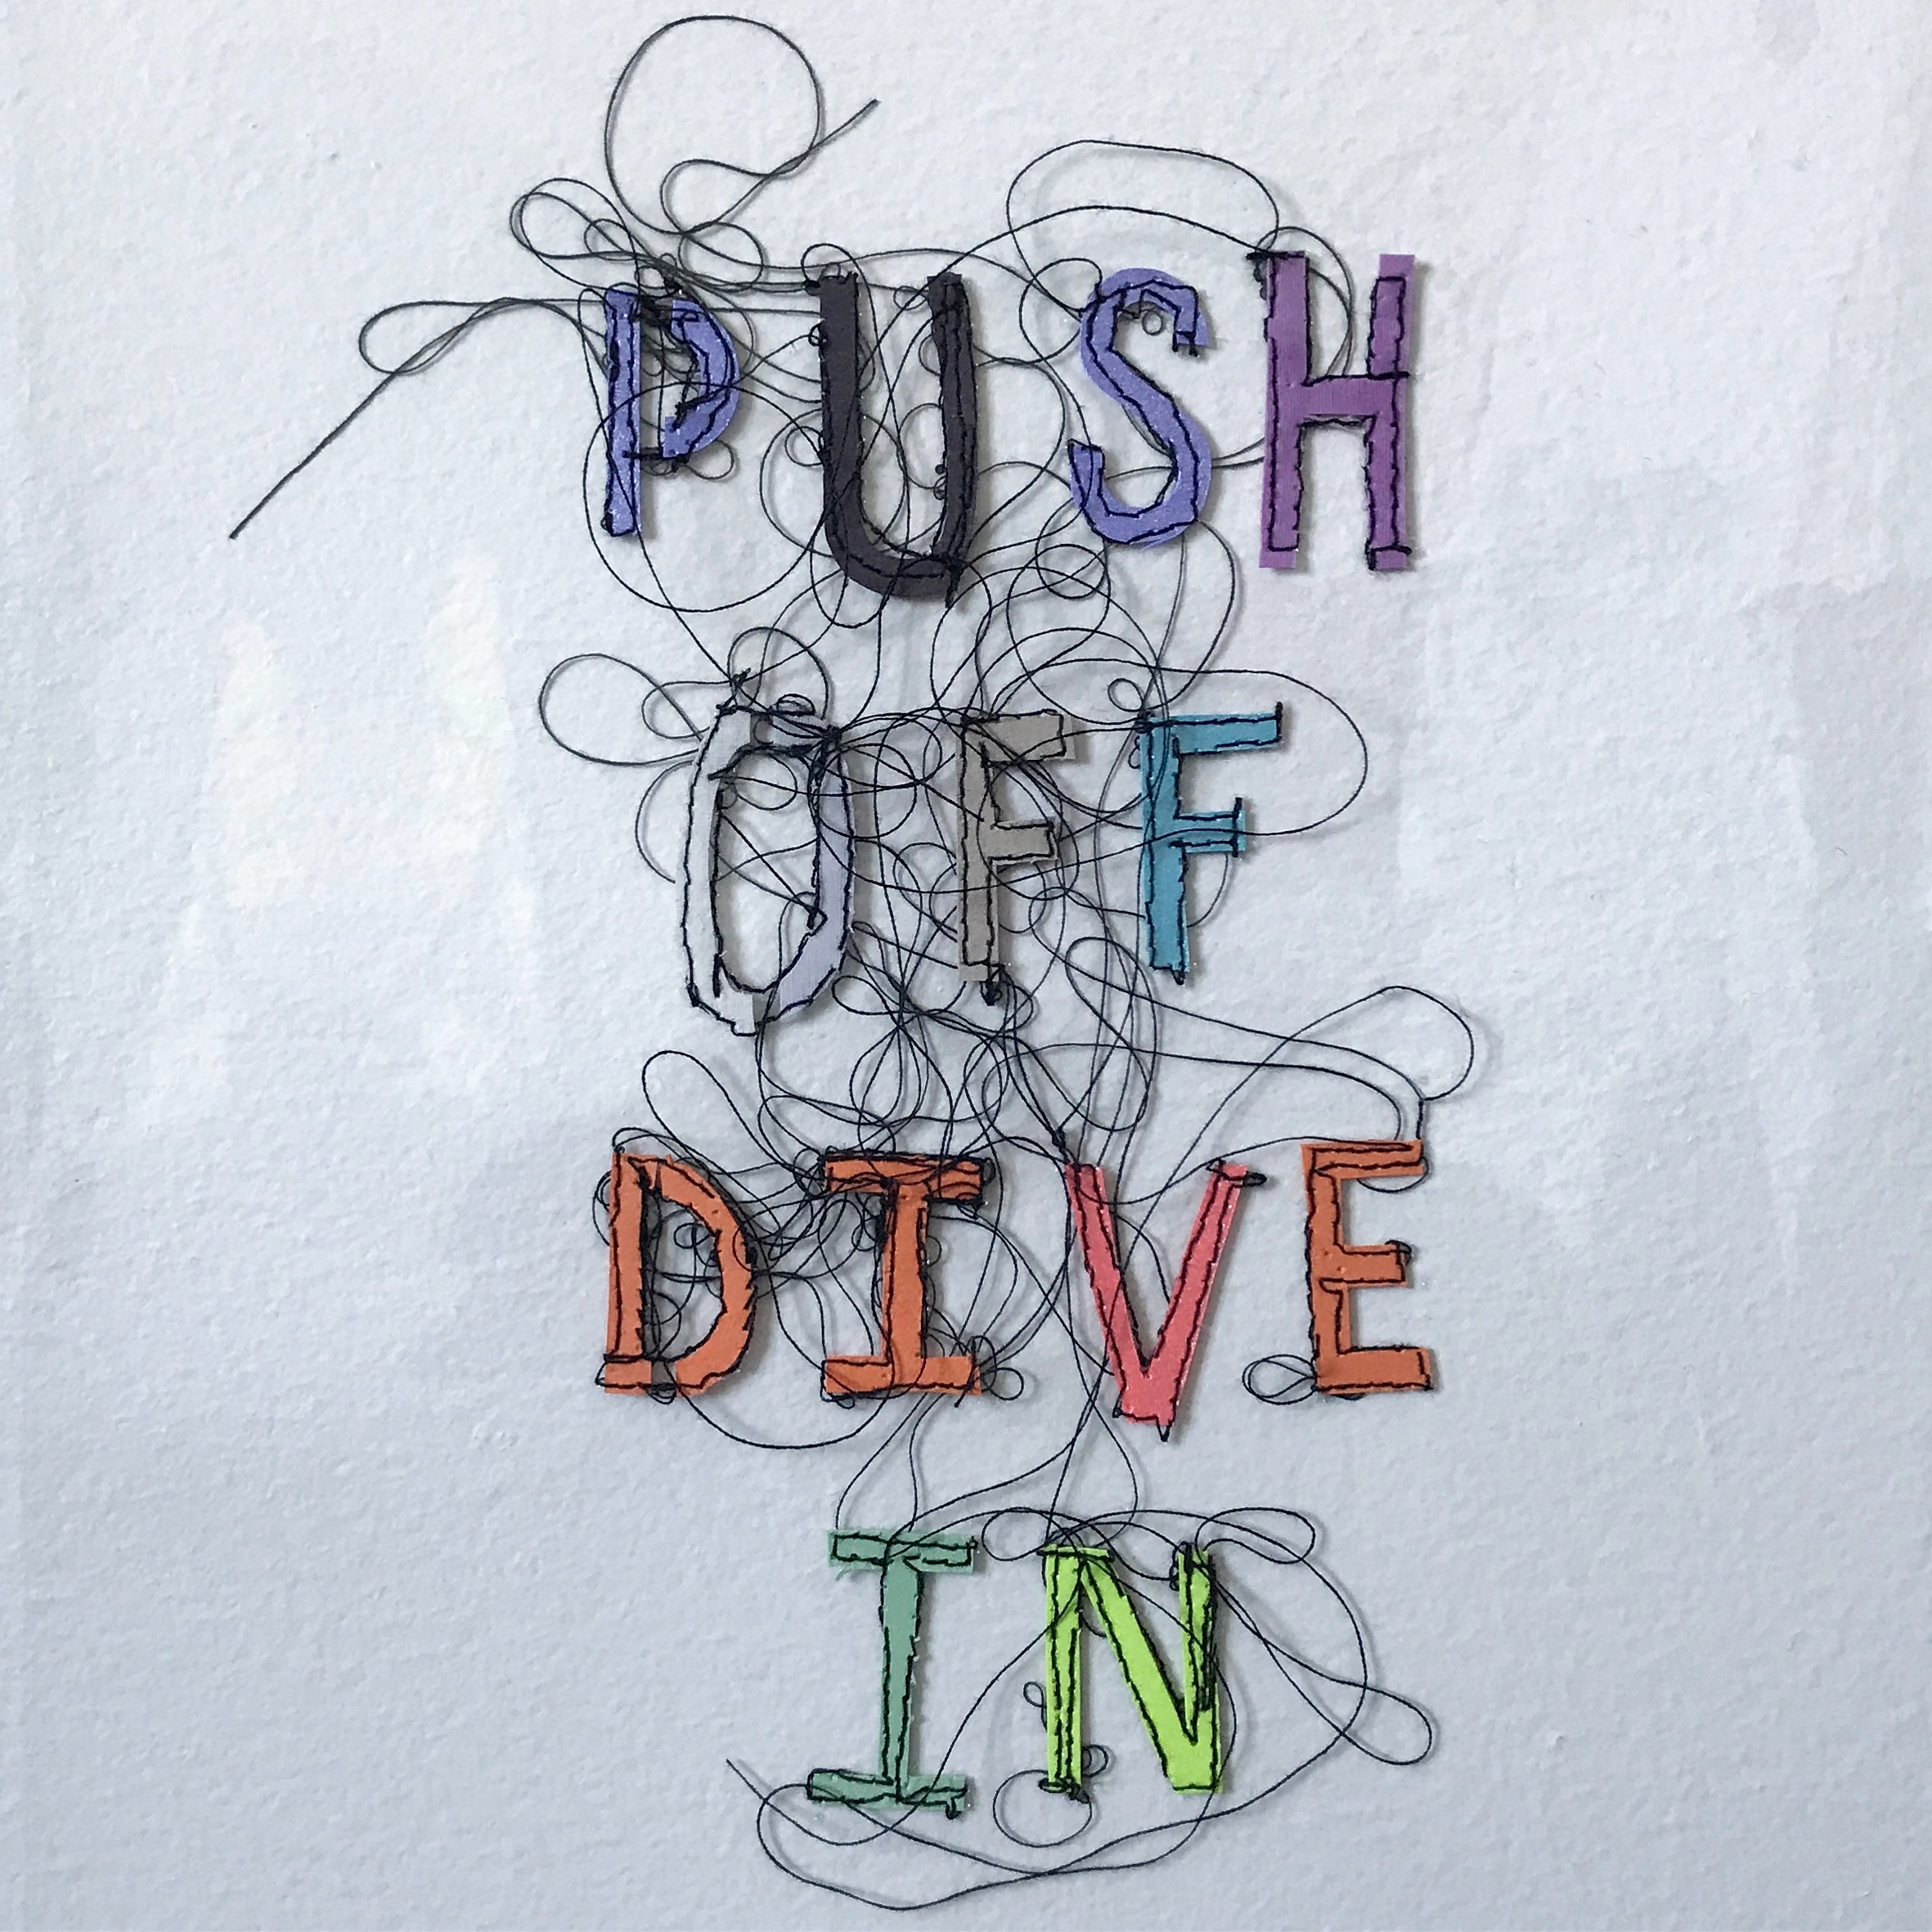 PUSH
OFF
DIVE
IN